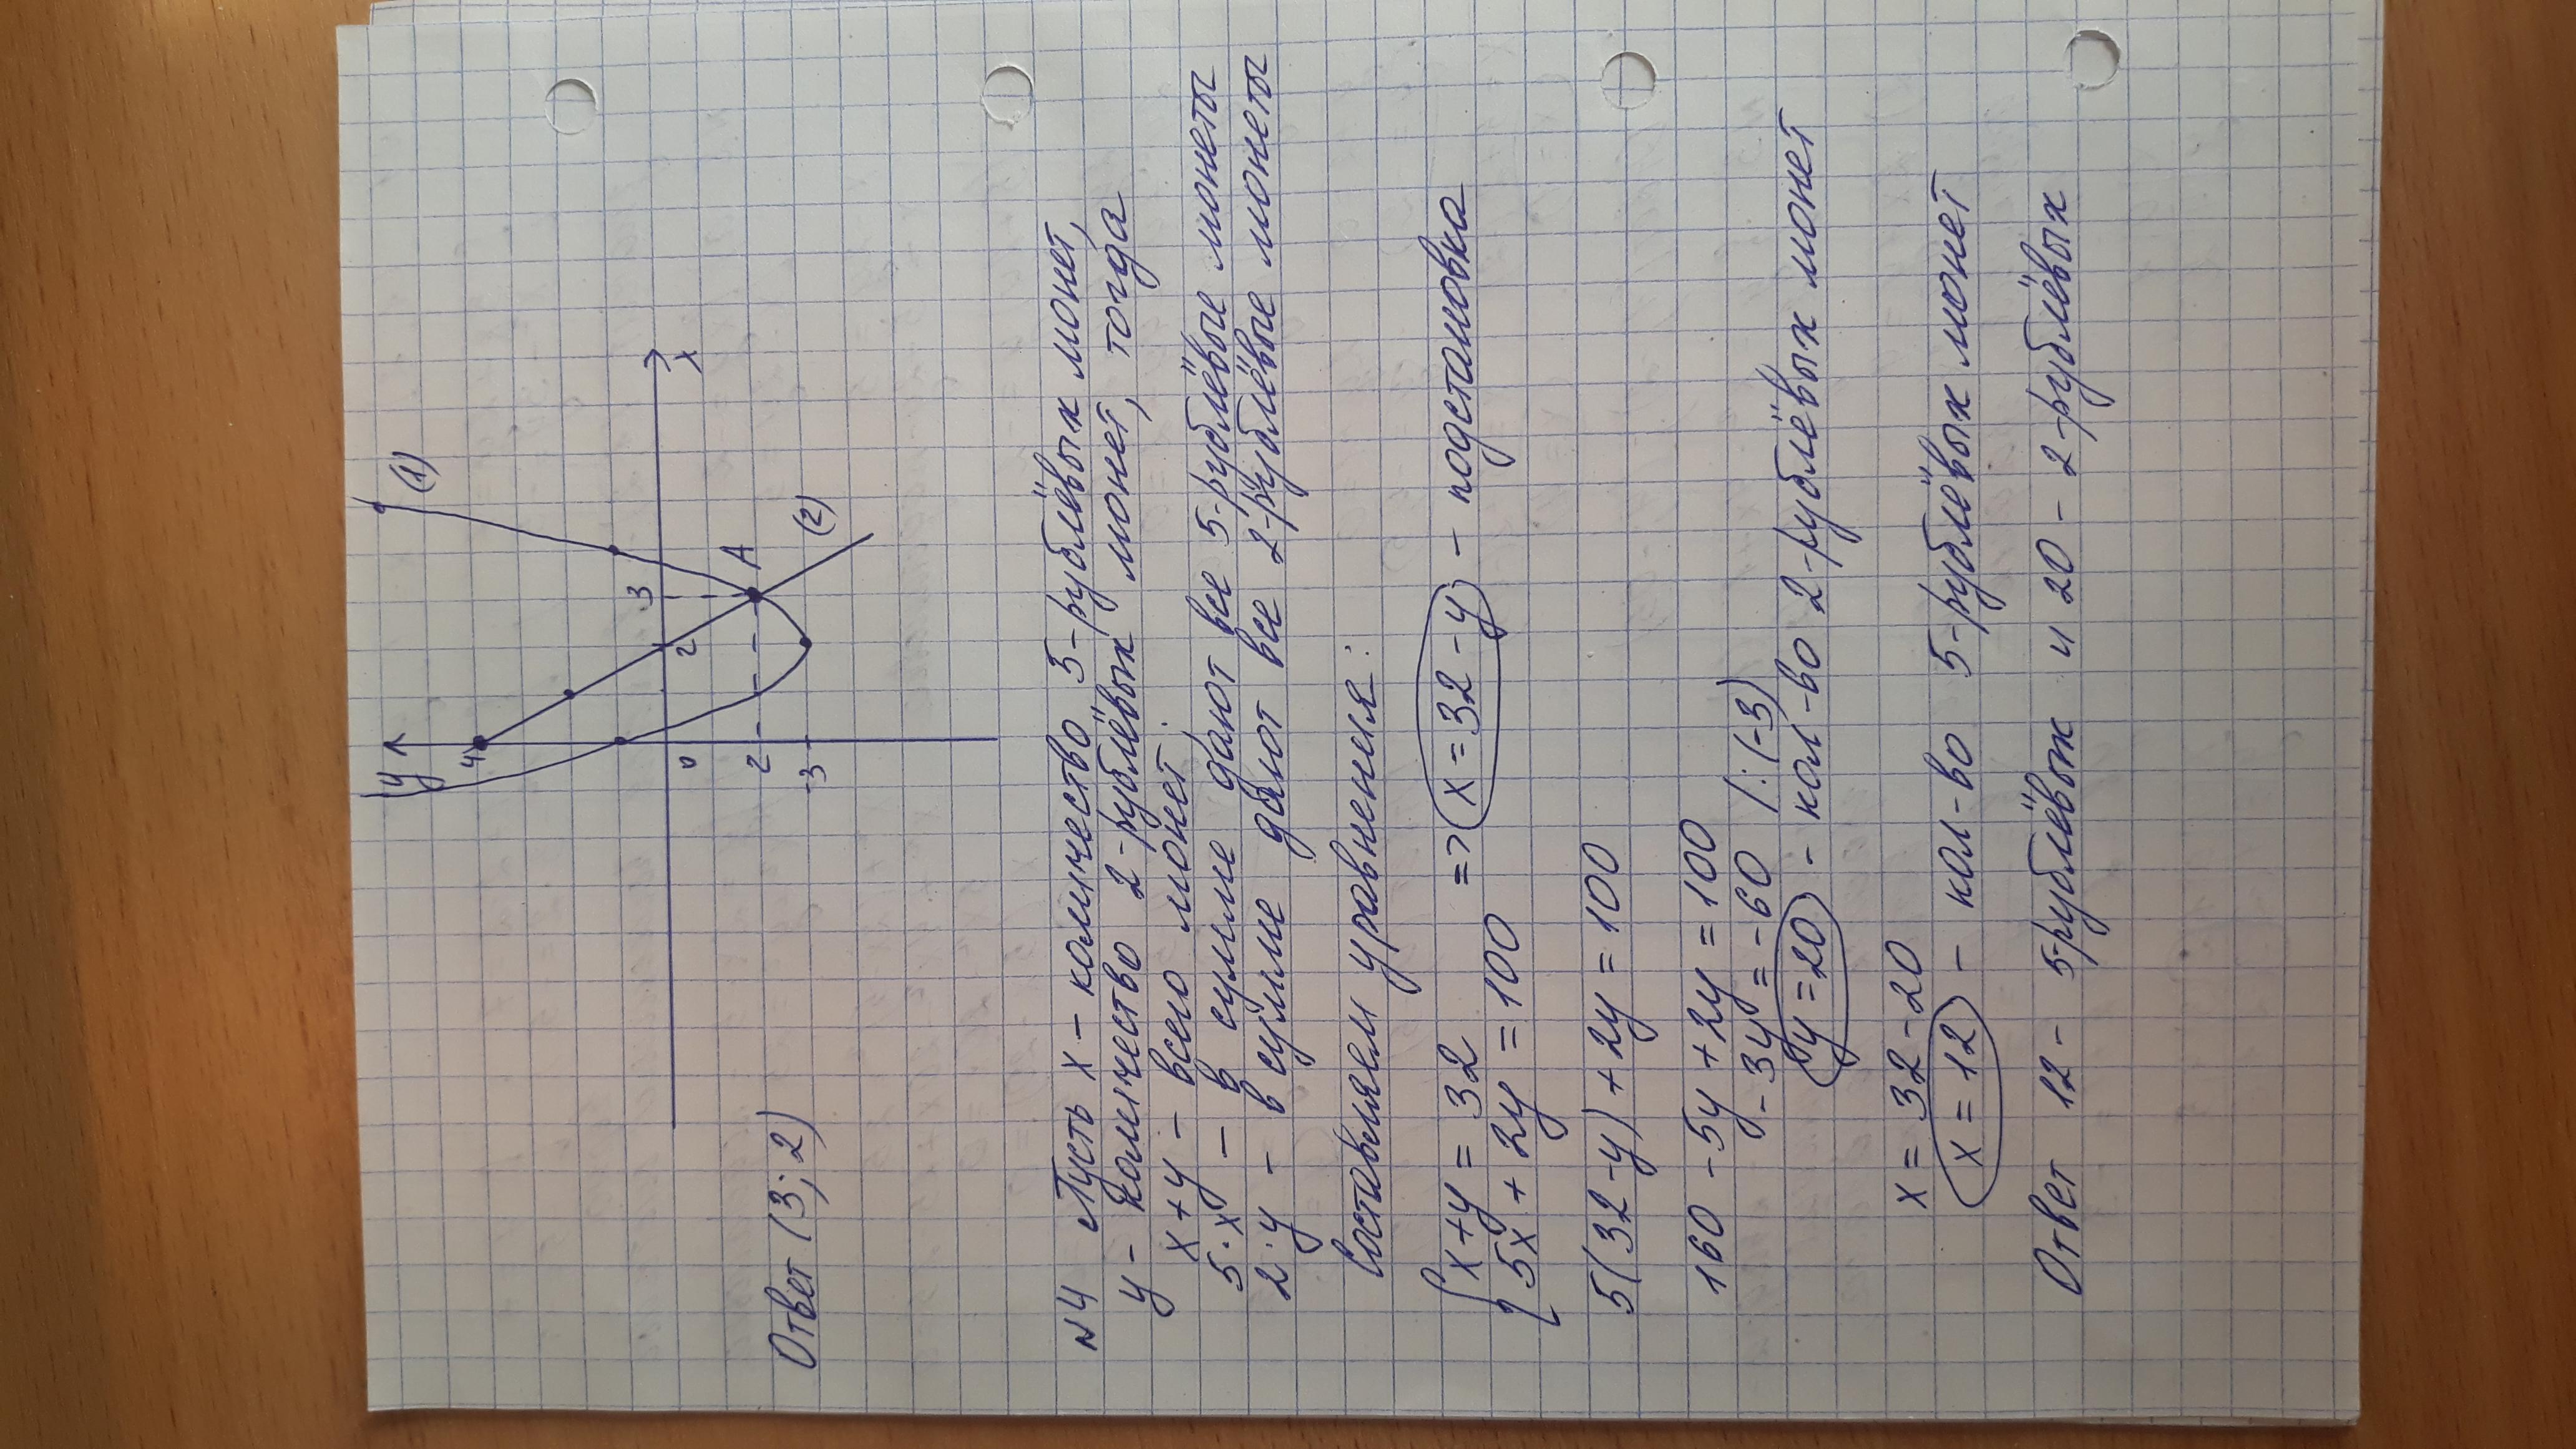 y
4
(1)
3
x
0
2
2
A
-3
(2)
Ответ (3; 2)
N4 Пусть x - количество 5-рублёвых монет,
y - количество 2-рублёвых монет, тогда
x + y - всего монет;
5·x - в сумме дают все 5-рублёвые монеты
2·y - в сумме дают все 2-рублёвые монеты
Составляем уравнения:
{ x + y = 32
{ 5x + 2y = 100 => x = 32 - y - подстановка
5(32 - y) + 2y = 100
160 - 5y + 2y = 100
- 3y = - 60 /:(-3)
y = 20 - кол-во 2-рублёвых монет
x = 32 - 20
x = 12 - кол-во 5-рублёвых монет
Ответ 12 - 5-рублёвых и 20 - 2-рублёвых